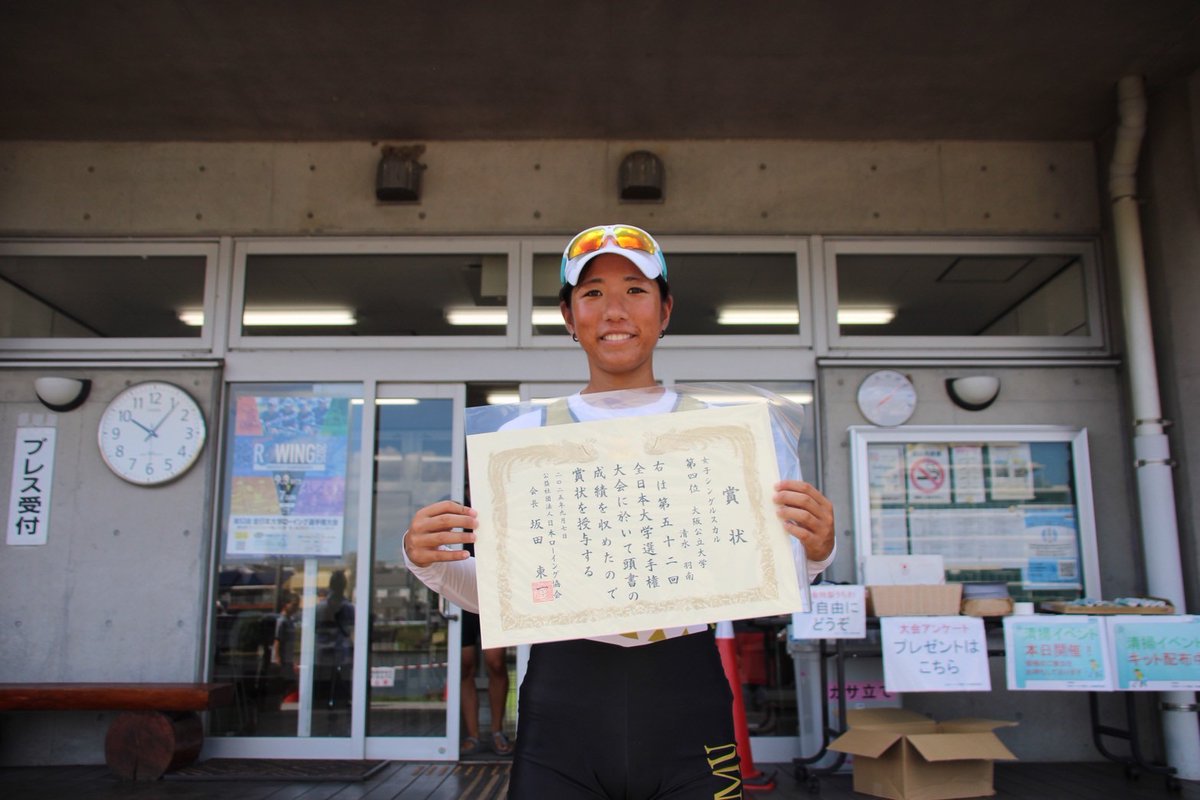 賞状
女子シングルスカル
第四位 大阪公立大学
清水 羽南
右は第五十二回
全日本大学選手権
大会に於いて頭書の
成績を収めたので
賞状を授与する
二〇二五年九月七日
公益社団法人日本ローイング協会
会長 坂田 東一
プレス受付
ROWING
第52回 全日本大学ローイング選手権大会
自由に
どうぞ
大会アンケート
プレゼントは
こちら
清掃イベント
本日開催！
清掃イベント
キット配布
カサ立て
OMU